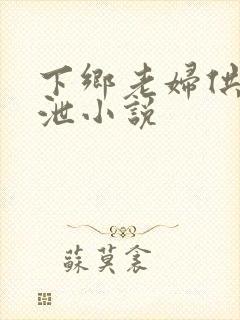 下鄉老婦供
泄小說
蘇莫衾